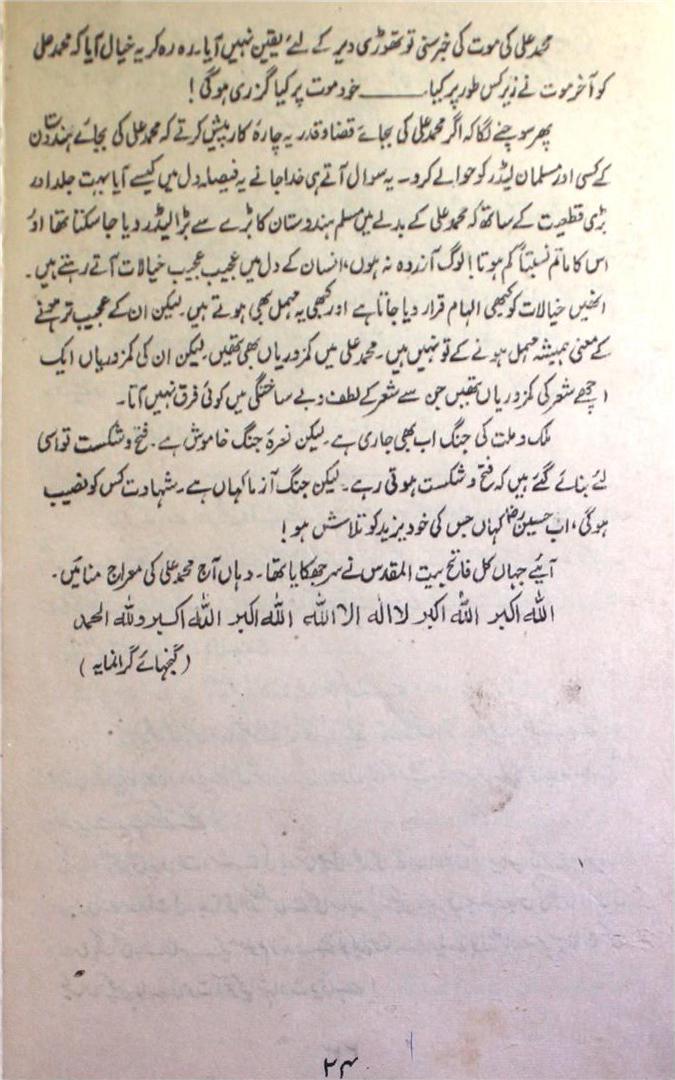 محمد علی کی موت کی خبر سنی تو تھوڑی دیر کے لئے یقین نہیں آیا۔ رہ رہ کر یہ خیال آیا کہ محمد علی
کو آخر موت نے زیر کس طور پر کیا ــــــــ خود موت پر کیا گزری ہوگی !
پھر سوچنے لگا کہ اگر محمد علی کی بجائے قضا و قدر یہ چارۂ کار پیش کرتے کہ محمد علی کی بجائے ہندوستان
کے کسی اور مسلمان لیڈر کو حوالے کردو۔ یہ سوال آتے ہی خدا جانے یہ فیصلہ دل میں کیسے آیا بہت جلد اور
بڑی قطعیت کے ساتھ کہ محمد علی کے بدلے میں مسلم ہندوستان کا بڑے سے بڑا لیڈر دیا جاسکتا تھا اور
اس کا ماتم نسبتاً کم ہوتا ! لوگ آزردہ نہ ہوں، انسان کے دل میں عجیب عجیب خیالات آتے رہتے ہیں۔
انھیں خیالات کو کبھی الہام قرار دیا جاتا ہے اور کبھی یہ مہمل بھی ہوتے ہیں۔ لیکن ان کے عجیب تر ہونے
کے معنی ہمیشہ مہمل ہونے کے تو نہیں ہیں۔ محمد علی میں کمزوریاں بھی تھیں۔ لیکن ان کی کمزوریاں ایک
اچھے شعر کی کمزوریاں تھیں جن سے شعر کے لطف و بے ساختگی میں کوئی فرق نہیں آتا۔
ملک و ملت کی جنگ اب بھی جاری ہے۔ لیکن نعرۂ جنگ خاموش ہے۔ فتح و شکست تو اسی
لئے بنائے گئے ہیں کہ فتح و شکست ہوتی رہے۔ لیکن جنگ آزما کہاں ہے۔ شہادت کس کو نصیب
ہوگی، اب حسینؓ کہاں جس کی خود یزید کو تلاش ہو !
آیئے جہاں کل فاتح بیت المقدس نے سر جھکایا تھا۔ وہاں آج محمد علی کی معراج منائیں۔
اللہ اکبر اللہ اکبر لا الہ الا اللہ اللہ اکبر اللہ اکبر وللہ الحمد
(گنجہائے گرانمایہ)
۲۴